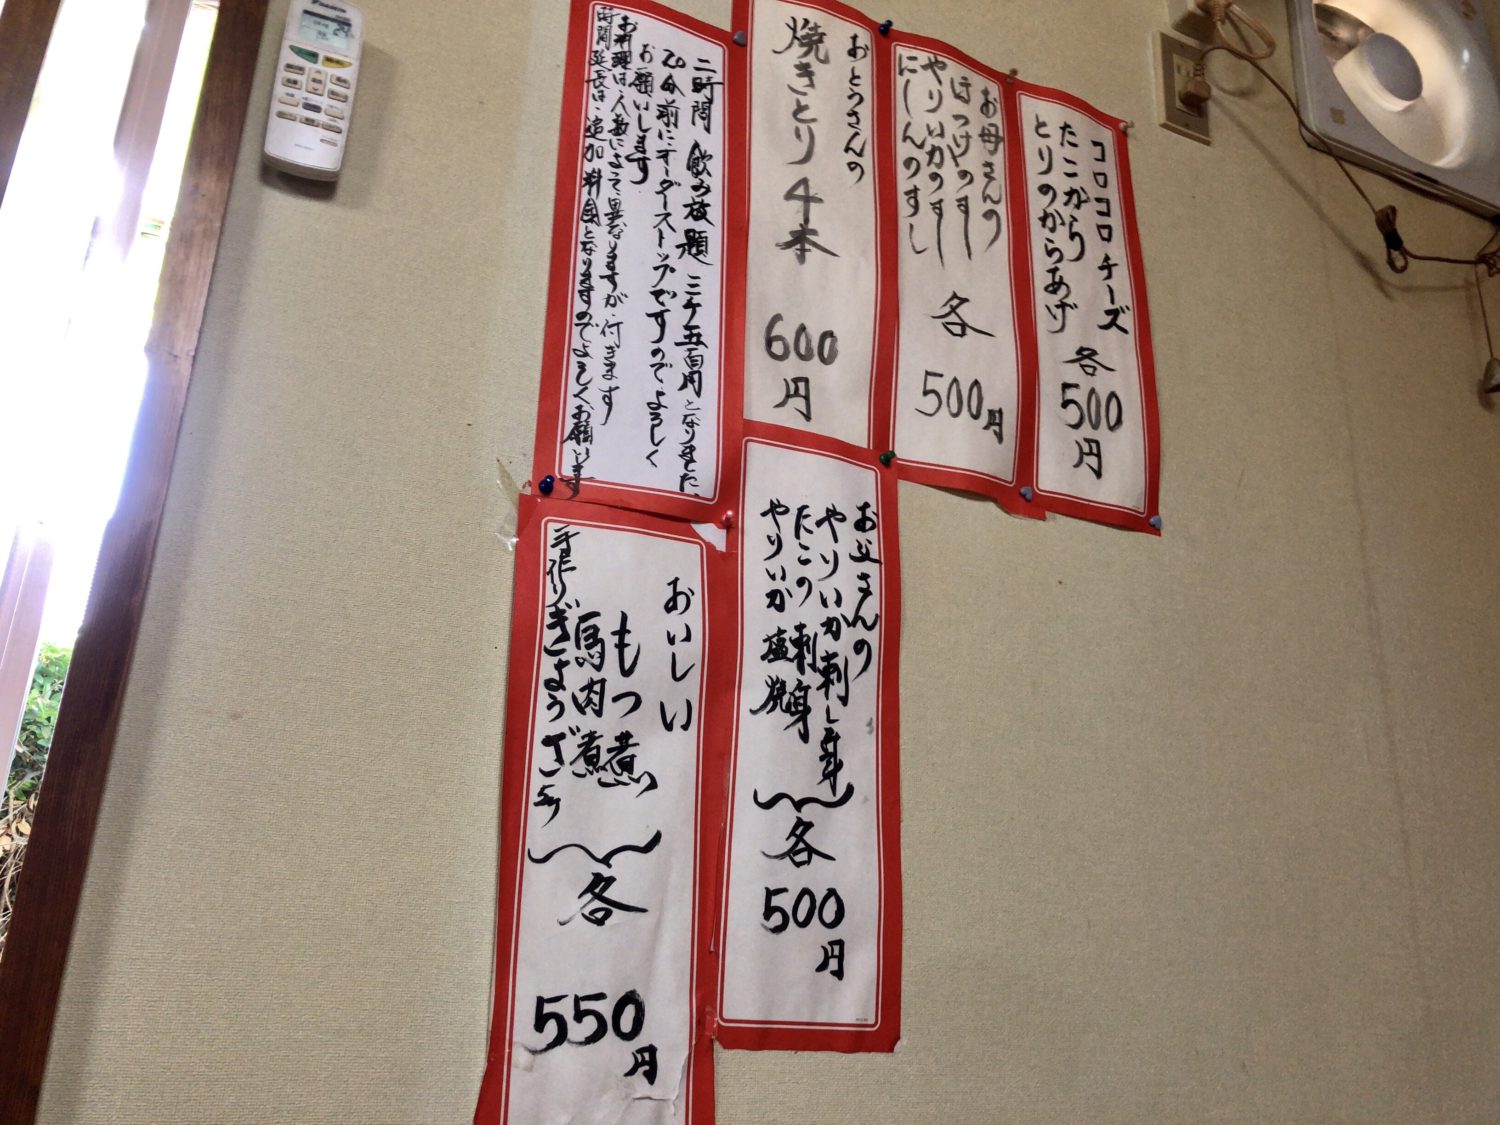 コロコロチーズ
たこから
とりのからあげ
各
500
円
お母さんの
ほっけやのすし
やりいかのすし
にしんのすし
各
500円
おとうさんの
焼きとり4本
600
円
二時間 飲み放題 三千五百円となりました、
20分前にオーダーストップですのでよろしく
お願いします
お料理は人数によって異なりますが、付きます
時間延長は、追加料金となりますのでよろしくお願います
お父さんの
やりいか刺し身
たこの刺身
やりいか塩焼
各
500
円
おいしい
もつ煮
馬肉煮
手作りぎょうざ
各
550
円